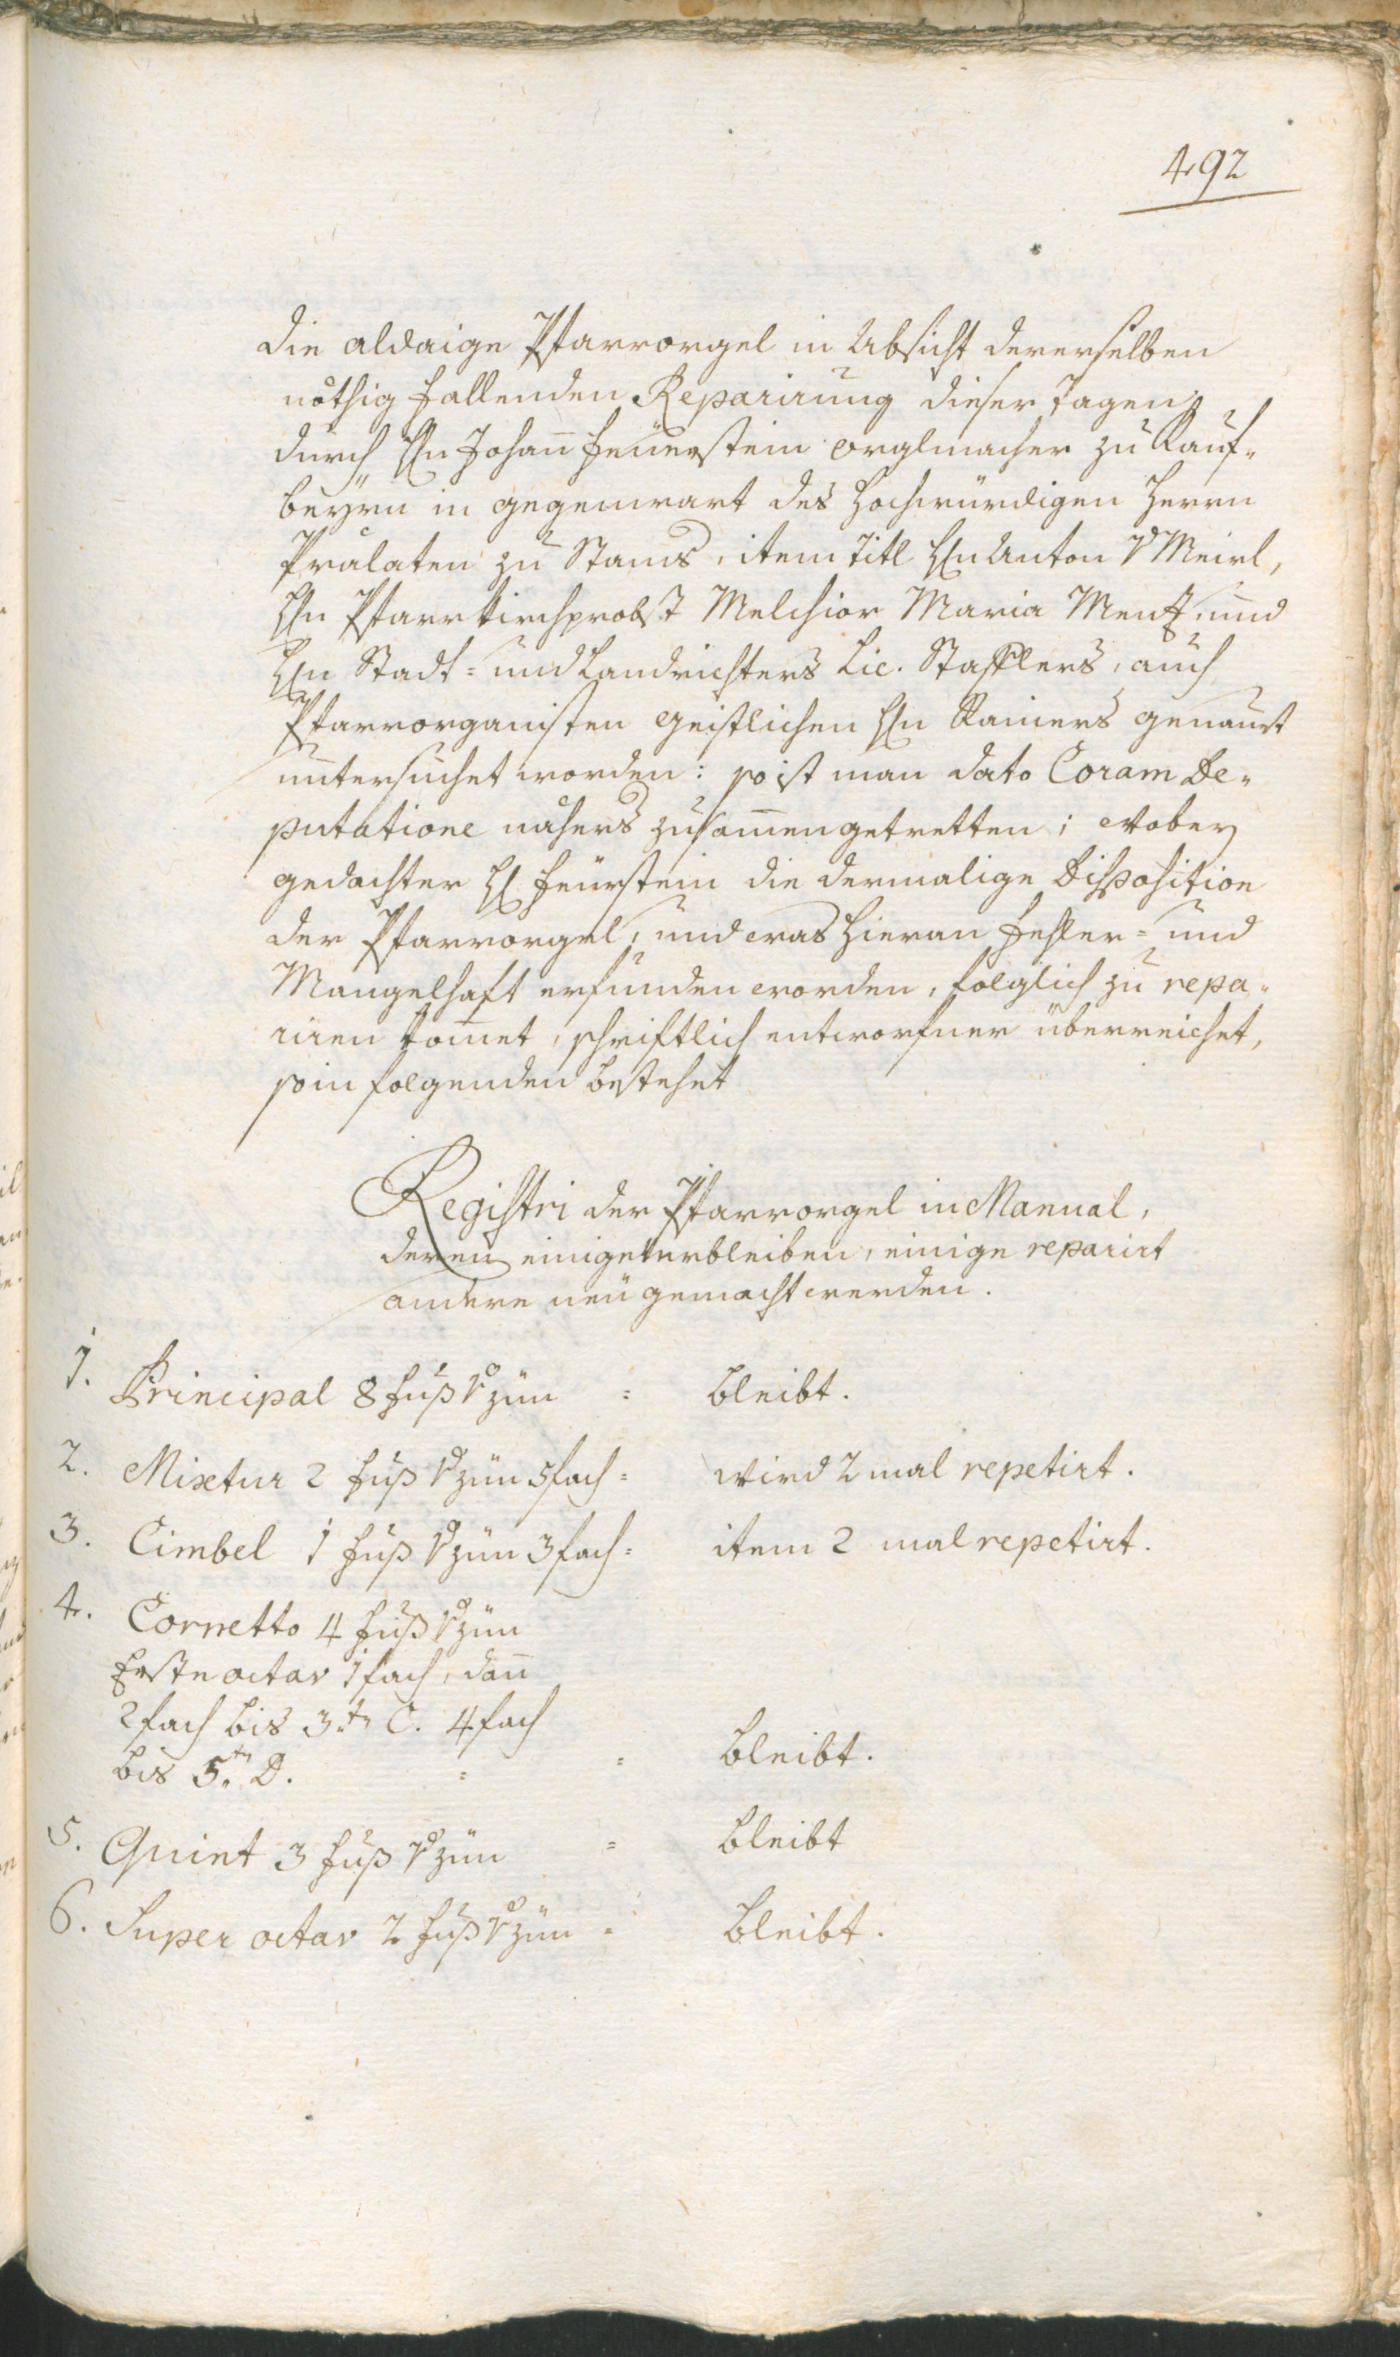 492
die aldaige Pfarrorgel in Absicht dererselben
nöthig fallenden Reparirung dieser Tagen,
durch Hn Johan̄ Feüerstein orglmacher zu Kauf-
beyrn in gegenwart des Hochwürdigen Herrn
Prälaten zu Stams, item Titl Hn Anton V Meirl,
Hn Pfarrkirchprobst Melchior Maria Menz, und
Hn Stadt- und Landrichters Lic. Stafflers, auch
Pfarrorganisten geistlichen Hn Rainers genauist
untersuchet worden: so ist man dato Coram De-
putatione nähers zusam̄engetretten; wobey
gedachter H. Feürstein die dermalige Disposition
der Pfarrorgel, und was hieran fehler- und
Mangelhaft erfunden worden, folglich zu repa-
riren kom̄et, schriftlich entworfner überreichet,
so in folgenden bestehet
Registri der Pfarrorgel in Manual,
deren einige verbleiben, einige reparirt
andere neü gemacht werden.
1. Principal 8 Fuß V zün = bleibt.
2. Mixtur 2 Fuß V zün 5fach = wird 2 mal repetirt.
3. Cimbel 1 Fuß V zün 3fach = item 2 mal repetirt.
4. Cornetto 4 Fuß V zün
Erste octav 1fach, dan̄
2fach bis 3.te C. 4fach
bis 5.te D. = = bleibt.
5. Quint 3 Fuß V zün = bleibt
6. Super octav 2 Fuß V zün = bleibt.